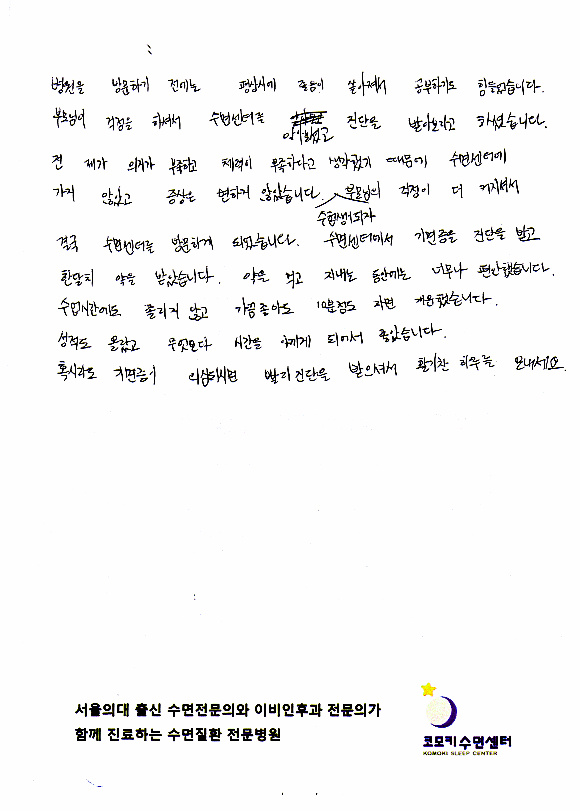 병원을 방문하기 전에는 평상시에 졸음이 쏟아져서 공부하기도 힘들었습니다.
부모님이 걱정을 하셔서 수면센터를 진단을 받아보라고 하셨습니다.
전 제가 의지가 부족하고 체력이 부족하다고 생각했기 때문에 수면센터에
가지 않았고 증상은 변하지 않았습니다. 수험생이 되자 부모님의 걱정이 더 커지셔서
결국 수면센터를 방문하게 되었습니다. 수면센터에서 기면증을 진단을 받고
한달치 약을 받았습니다. 약을 먹고 지내는 동안에는 너무나 편안했습니다.
수업시간에도 졸리지 않고 가끔 졸아도 10분정도 자면 개운했습니다.
성적도 올랐고 무엇보다 시간을 아끼게 되어서 좋았습니다.
혹시라도 기면증이 의심되시면 빨리 진단을 받으셔서 활기찬 하루를 보내세요.
서울의대 출신 수면전문의와 이비인후과 전문의가
함께 진료하는 수면질환 전문병원
코모키수면센터
KOMOKI SLEEP CENTER